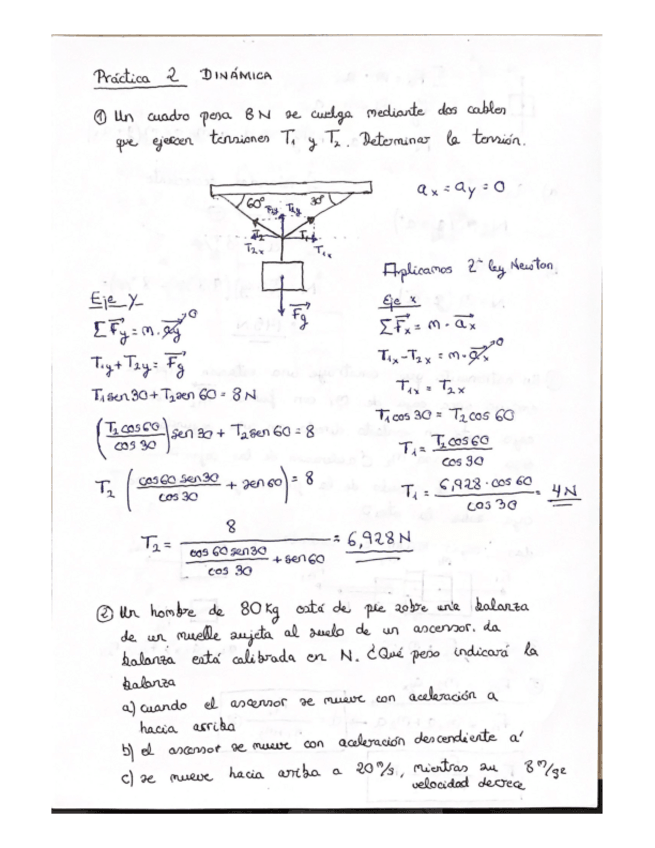 Práctica 2 DINÁMICA
① Un cuadro pesa 8N se cuelga mediante dos cables
que ejercen tensiones T₁ y T₂. Determinar la tensión.
60° F₂y T₁y 30°
T₂ T₁
T₂ₓ T₁ₓ
Fg
aₓ = a_y = 0
Aplicamos 2ª ley Newton
Eje Y
ΣF_y = m·a_y 0
T₁y + T₂y = Fg
T₁ sen 30 + T₂ sen 60 = 8 N
(T₂ cos 60 / cos 30) sen 30 + T₂ sen 60 = 8
T₂ (cos 60 sen 30 / cos 30 + sen 60) = 8
T₂ = 8 / (cos 60 sen 30 / cos 30 + sen 60) = 6,928 N
Eje x
ΣFₓ = m · aₓ
T₁ₓ - T₂ₓ = m·aₓ 0
T₁ₓ = T₂ₓ
T₁ cos 30 = T₂ cos 60
T₁ = T₂ cos 60 / cos 30
T₁ = 6,928 · cos 60 / cos 30 = 4 N
② Un hombre de 80 kg está de pie sobre una balanza
de un muelle sujeta al suelo de un ascensor. La
balanza está calibrada en N. ¿Qué peso indicará la
balanza
a) cuando el ascensor se mueve con aceleración a
hacia arriba
b) el ascensor se mueve con aceleración descendiente a'
c) se mueve hacia arriba a 20 m/s, mientras su velocidad decrece 8 m/se